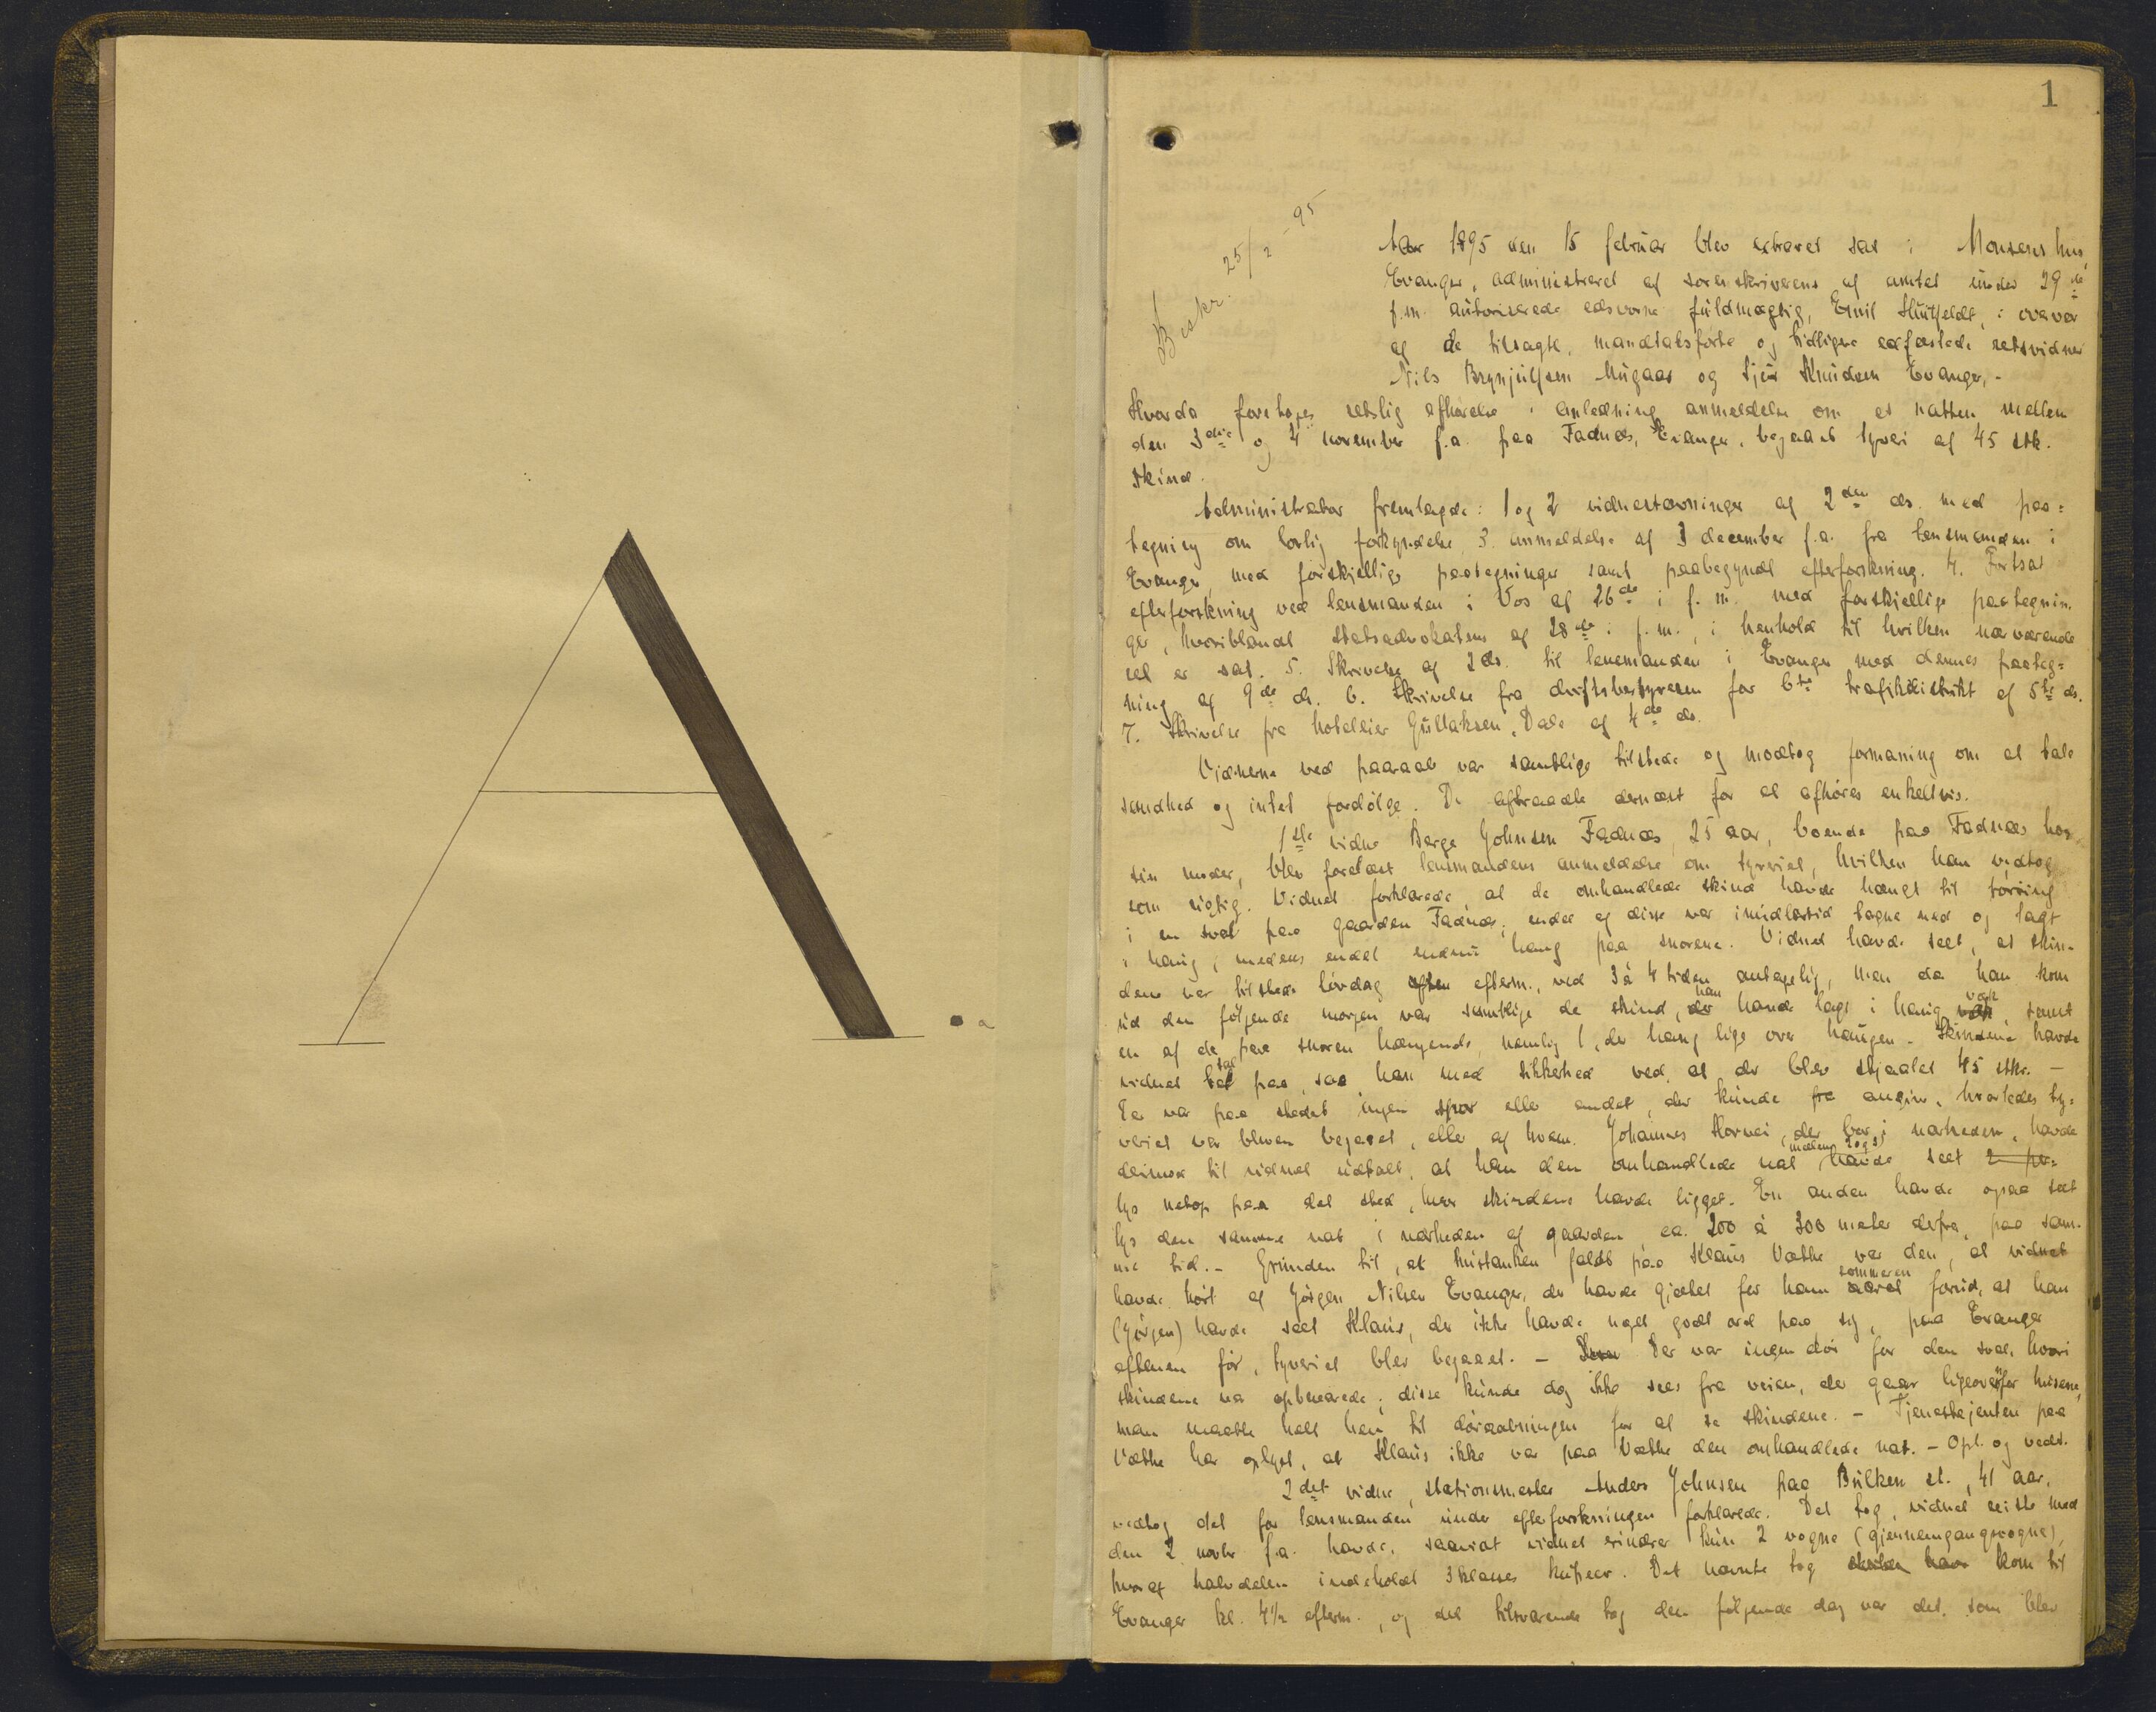 A
a
1
Beskr. 25/2 - 95
Aar 1895 den 15 februar blev extraret sat i Monsens hus,
Evanger, administreret af sorenskriverens af amtet under 29de
f.m. autoriserede edsvorne fuldmægtig, Emil Huitfeldt, i overvær
af de tilsagte, mandtalsførte og tidligere edfæstede retsvidner
Nils Brynjulfsen Mugaas og Sjur Knudsen Evanger, -
Hvorda foretoges retslig afhørelse i anledning anmeldelse om et natten mellem
den 3die og 4 november f.a. paa Fadnæs, Evanger, begaaet tyveri af 45 stk.
skind.
Administrator fremlagde: 1 og 2 vidnestævninger af 2den ds. med paa=
tegning om lovlig forkyndelse, 3. anmeldelse af 3 december f.a. fra lensmanden i
Evanger med forskjellige paategninger samt paabegyndt efterforskning. 4. Fortsat
efterforskning ved lensmanden i Vos af 26de i f.m. med forskjellige paategnin-
ger, hvoriblandt statsadvokatens af 28de i f.m., i henhold til hvilken nærværende
ret er sat. 5. Skrivelse af 2 ds. til lensmanden i Evanger med dennes paateg=
ning af 9de ds. 6. Skrivelse fra driftsbestyreren for 6te trafikdistrikt af 5te ds.
7. Skrivelse fra hotellier Gullaksen, Dale af 4de ds.
Vidnerne ved paaraab var samtlige tilstede og modtog formaning om at tale
sandhed og intet fordølge. De aftraadte dernæst for at afhøres enkeltvis.
1ste vidne Børge Johnsen Fadnæs, 25 aar, boende paa Fadnæs hos
sin moder, blev forelæst lensmandens anmeldelse om tyveriet, hvilken han vedtog
som rigtig. Vidnet forklarede, at de omhandlede skind havde hængt til tørring
i en sval paa gaarden Fadnæs; endel af disse var imidlertid tagne ned og lagt
i haug, medens endel endnu hang paa snorene. Vidnet havde seet, at skin-
dene var tilstede lørdag aften efterm., ved 3 à 4 tiden antagelig, men da han kom
ud den følgende morgen var samtlige de skind, der han havde lagt i haug, væk, samt
en af de paa snoren hængende, nemlig 1, der hang lige over haugen. - Skindene havde
vidnet tal paa, saa han med sikkerhed ved, at der blev stjaalet 45 stkr. -
Der var paa stedet ingen spor eller andet, der kunde fra angive, hvorledes ty=
veriet var bleven begaaet, eller af hvem. Johannes Hornei, der bor i nærheden, havde
derimod til vidnet udtalt, at han den omhandlede nat havde seet 2 per-
lys netop paa det sted, hvor skindene havde ligget. En anden havde ogsaa seet
lys den samme nat i nærheden af gaarden, ca. 200 à 300 meter derfra, paa sam-
me tid. - Grunden til, at mistanken faldt paa Klaus Væthe var den, at vidnet
havde hørt af Jørgen Nilsen Evanger, der havde gjætet for ham aaret sommeren forud, at han
(Jørgen) havde seet Klaus, der ikke havde noget godt ord paa sig, paa Evanger
aftenen før, tyveriet blev begaaet. - Der var ingen dør for den sval, hvori
skindene var opbevarede; disse kunde dog ikke sees fra veien, der gaar ligeoverfor husene,
man maatte helt hen til døraabningen for at se skindene. - Tjenestejenten paa
Væthe har oplyst, at Klaus ikke var paa Væthe den omhandlede nat. - Opl. og vedt.
2det vidne, stationsmester Anders Johnsen paa Bulken st., 41 aar,
vedtog det for lensmanden under efterforskningen forklarede. Det tog, vidnet reiste med
den 2 novbr f.a. havde, saavidt vidnet erindrer kun 2 vogne (gjennemgangsvogne),
hvoraf halvdelen indeholdt 3 klasses kupeer. Det nævnte tog kom til
Evanger kl. 4½ efterm., og det tilsvarende tog den følgende dag var det, som blev